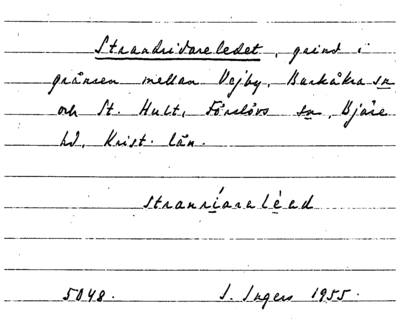 Strandridareledet, grind i
gränsen mellan Vejby, Barkåkra sn
och St. Hult, Förslövs sn, Bjäre
hd, Krist. län.
stranríarelèad
5048. I. Ingers 1955.